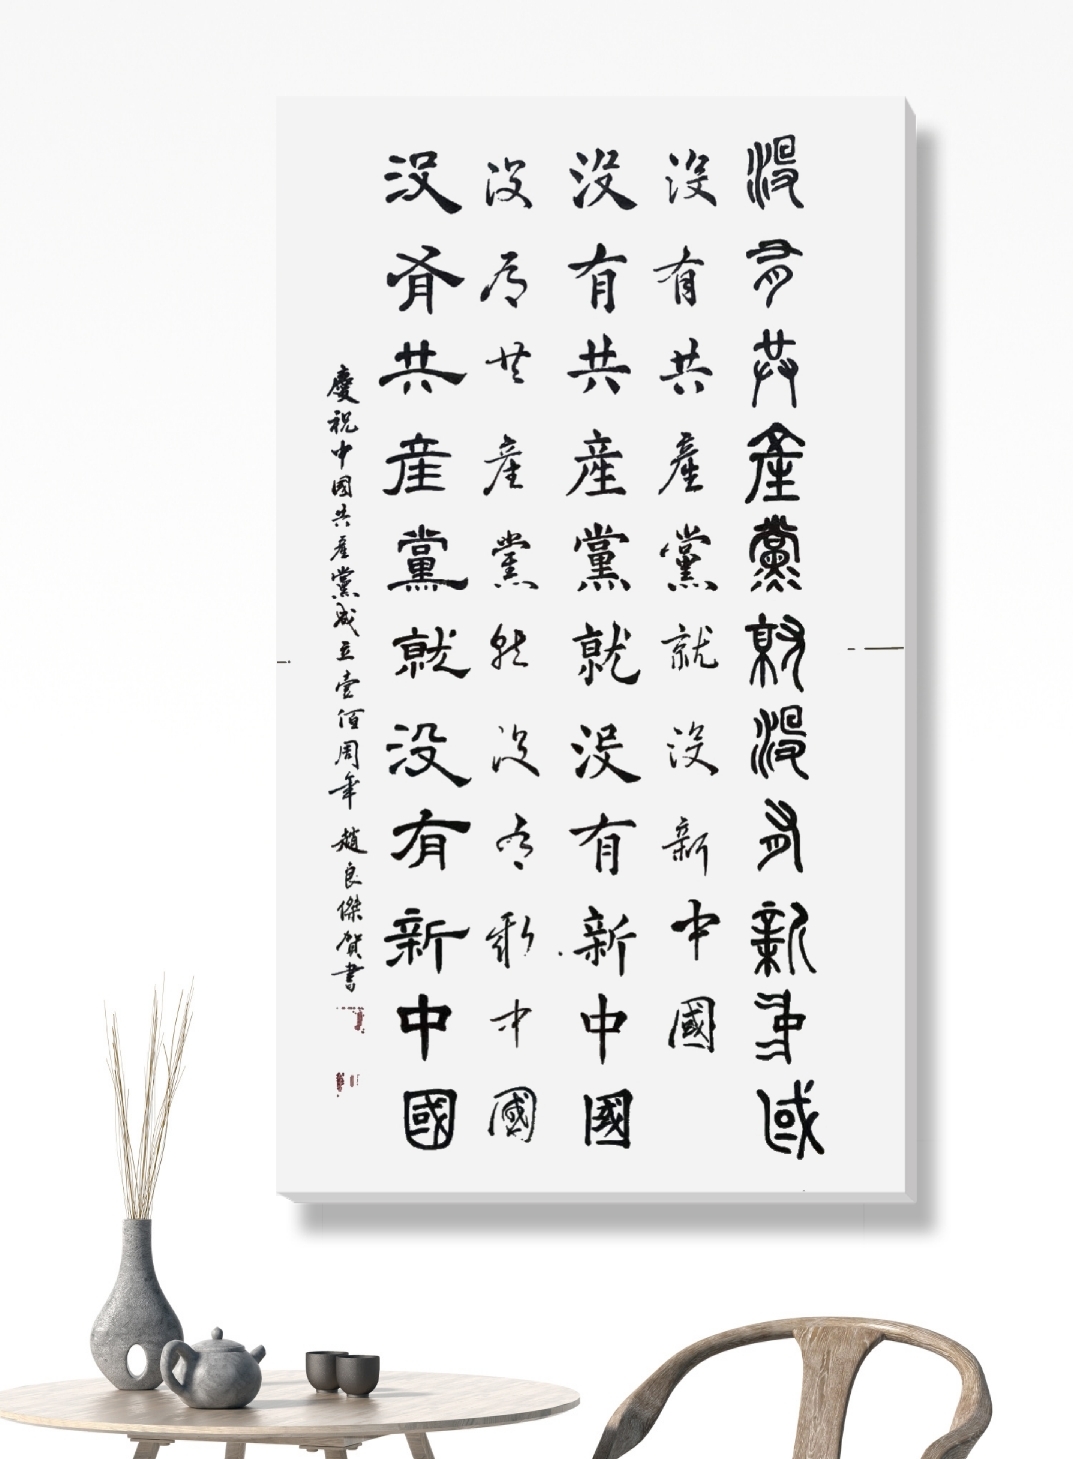 没有共產黨就没有新中國
没有共產黨就没新中國
没有共產黨就没有新中國
没有共產黨就没有新中國
没有共產黨就没有新中國
慶祝中國共產黨成立壹佰周年 趙良傑賀書